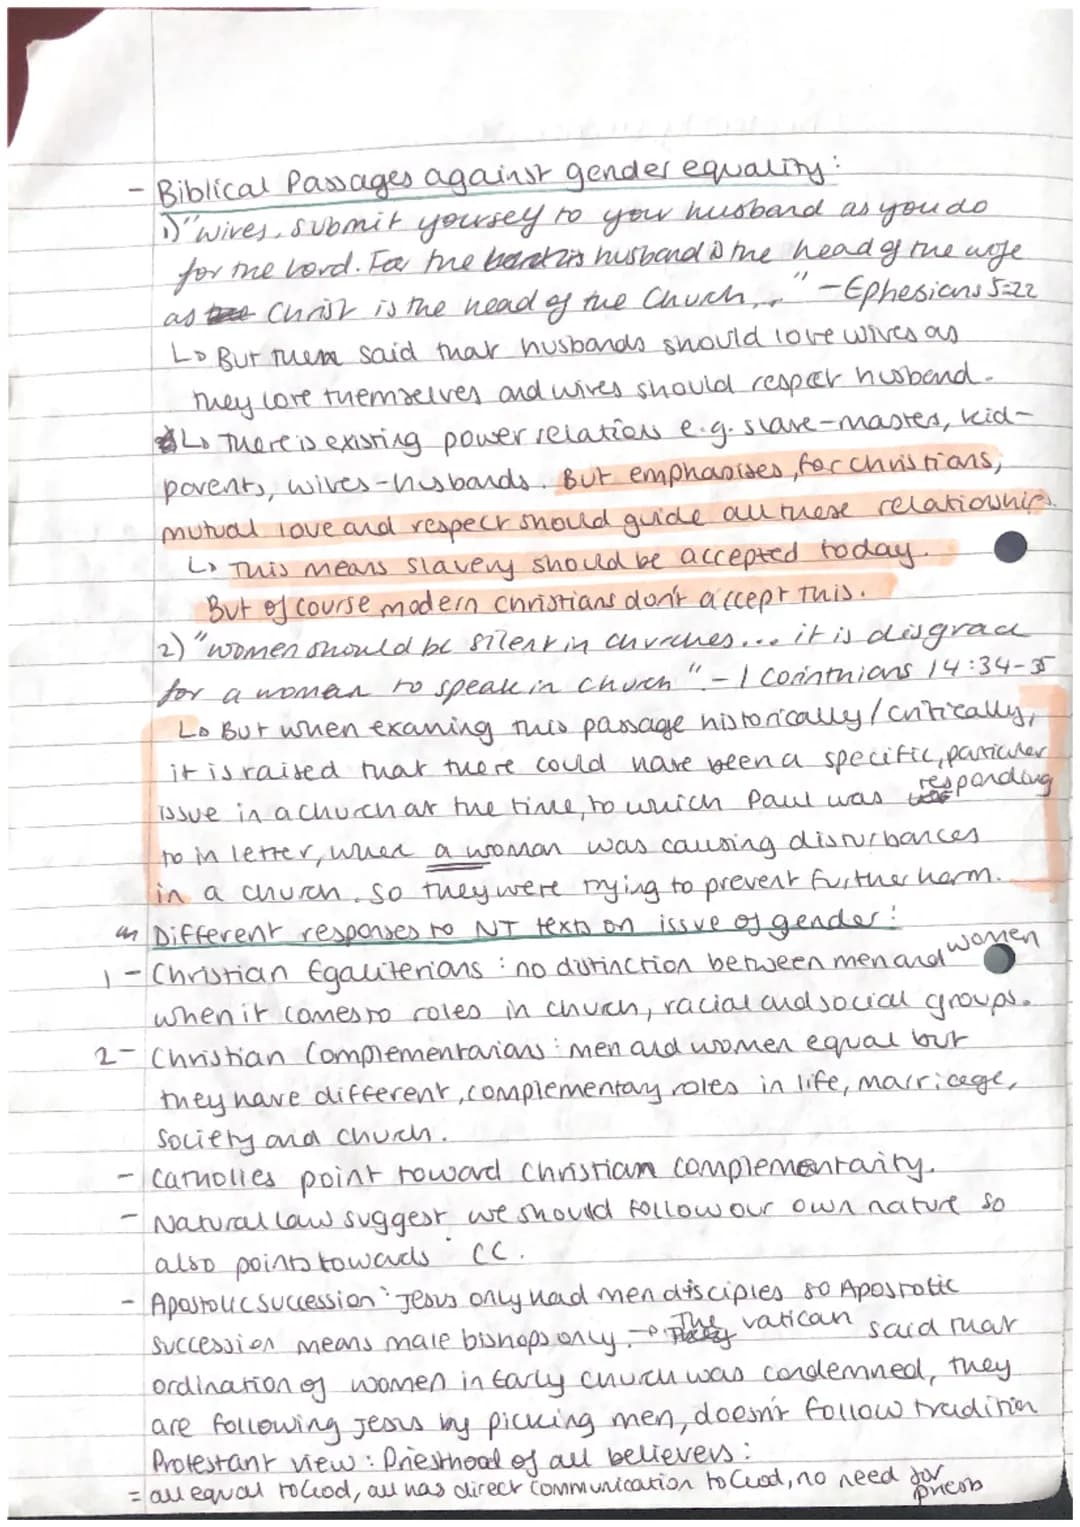 - Biblical Passages against gender equality:
1) "wives, submit yourself to your husband as you do
for the Lord. For the husband is the head of the wife
as Christ is the head of the Church..." - Ephesians 5:22
↳ But then said that husbands should love wives as
they love themselves and wives should respect husband.
↳ There is existing power relations e.g. slave-master, kid-
parents, wives-husbands. But emphasises, for christians,
mutual love and respect should guide all these relationships.
↳ This means slavery should be accepted today.
But of course modern christians don't accept this.
2) "women should be silent in churches... it is disgrace
for a woman to speak in church" - 1 Corinthians 14:34-35
↳ But when examing this passage historically/critically,
it is raised that there could have been a specific, particular
issue in a church at the time, to which Paul was responding
to in letter, when a woman was causing disturbances
in a church. So they were trying to prevent further harm.
Different responses to NT texts on issue of gender:
1 - Christian Egaliterians: no distinction between men and women
when it comes to roles in church, racial and social groups.
2 - Christian Complementarians: men and women equal but
they have different, complementary roles in life, marriage,
society and church.
- Catholics point toward Christian complementarity.
- Natural law suggest we should follow our own nature so
also points towards CC.
- Apostolic succession: Jesus only had men disciples so Apostolic
succession means male bishops only. → The vatican said that
ordination of women in Early church was condemned, they
are following Jesus by picking men, doesn't follow tradition
Protestant view: Priesthood of all believers:
= all equal to God, all has direct communication to God, no need for
priests